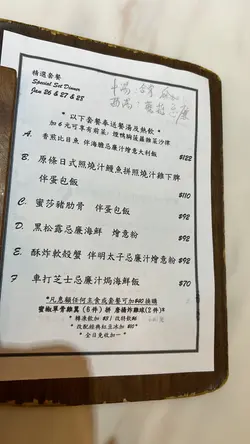 精選套餐
Special Set Dinner
Jan 26 & 27 & 28
* 以下套餐奉送餐湯及熱飲 *
加 6 元可享有前菜: 煙鴨胸菠蘿雜菜沙律
A. 香煎比目魚 伴海膽忌廉汁燴意大利飯 $122
B. 原條日式照燒汁鰻魚拼照燒汁雞下髀
伴蛋包飯 $110
C. 蜜莎豬肋骨 伴蛋包飯 $92
D. 黑松露忌廉海鮮 燴意粉 $92
E. 酥炸軟殼蟹 伴明太子忌廉汁燴意粉 $92
F 車打芝士忌廉汁焗海鮮飯 $92
*凡惠顧任何主食或套餐可加$40換購
蜜椒單骨雞翼 (6件) 拼 唐揚炸雞球(2件)*
* 轉凍飲加 $3 / 改特飲$6
* 改配經典紅豆冰加 $10*
* 全日免收加一 *